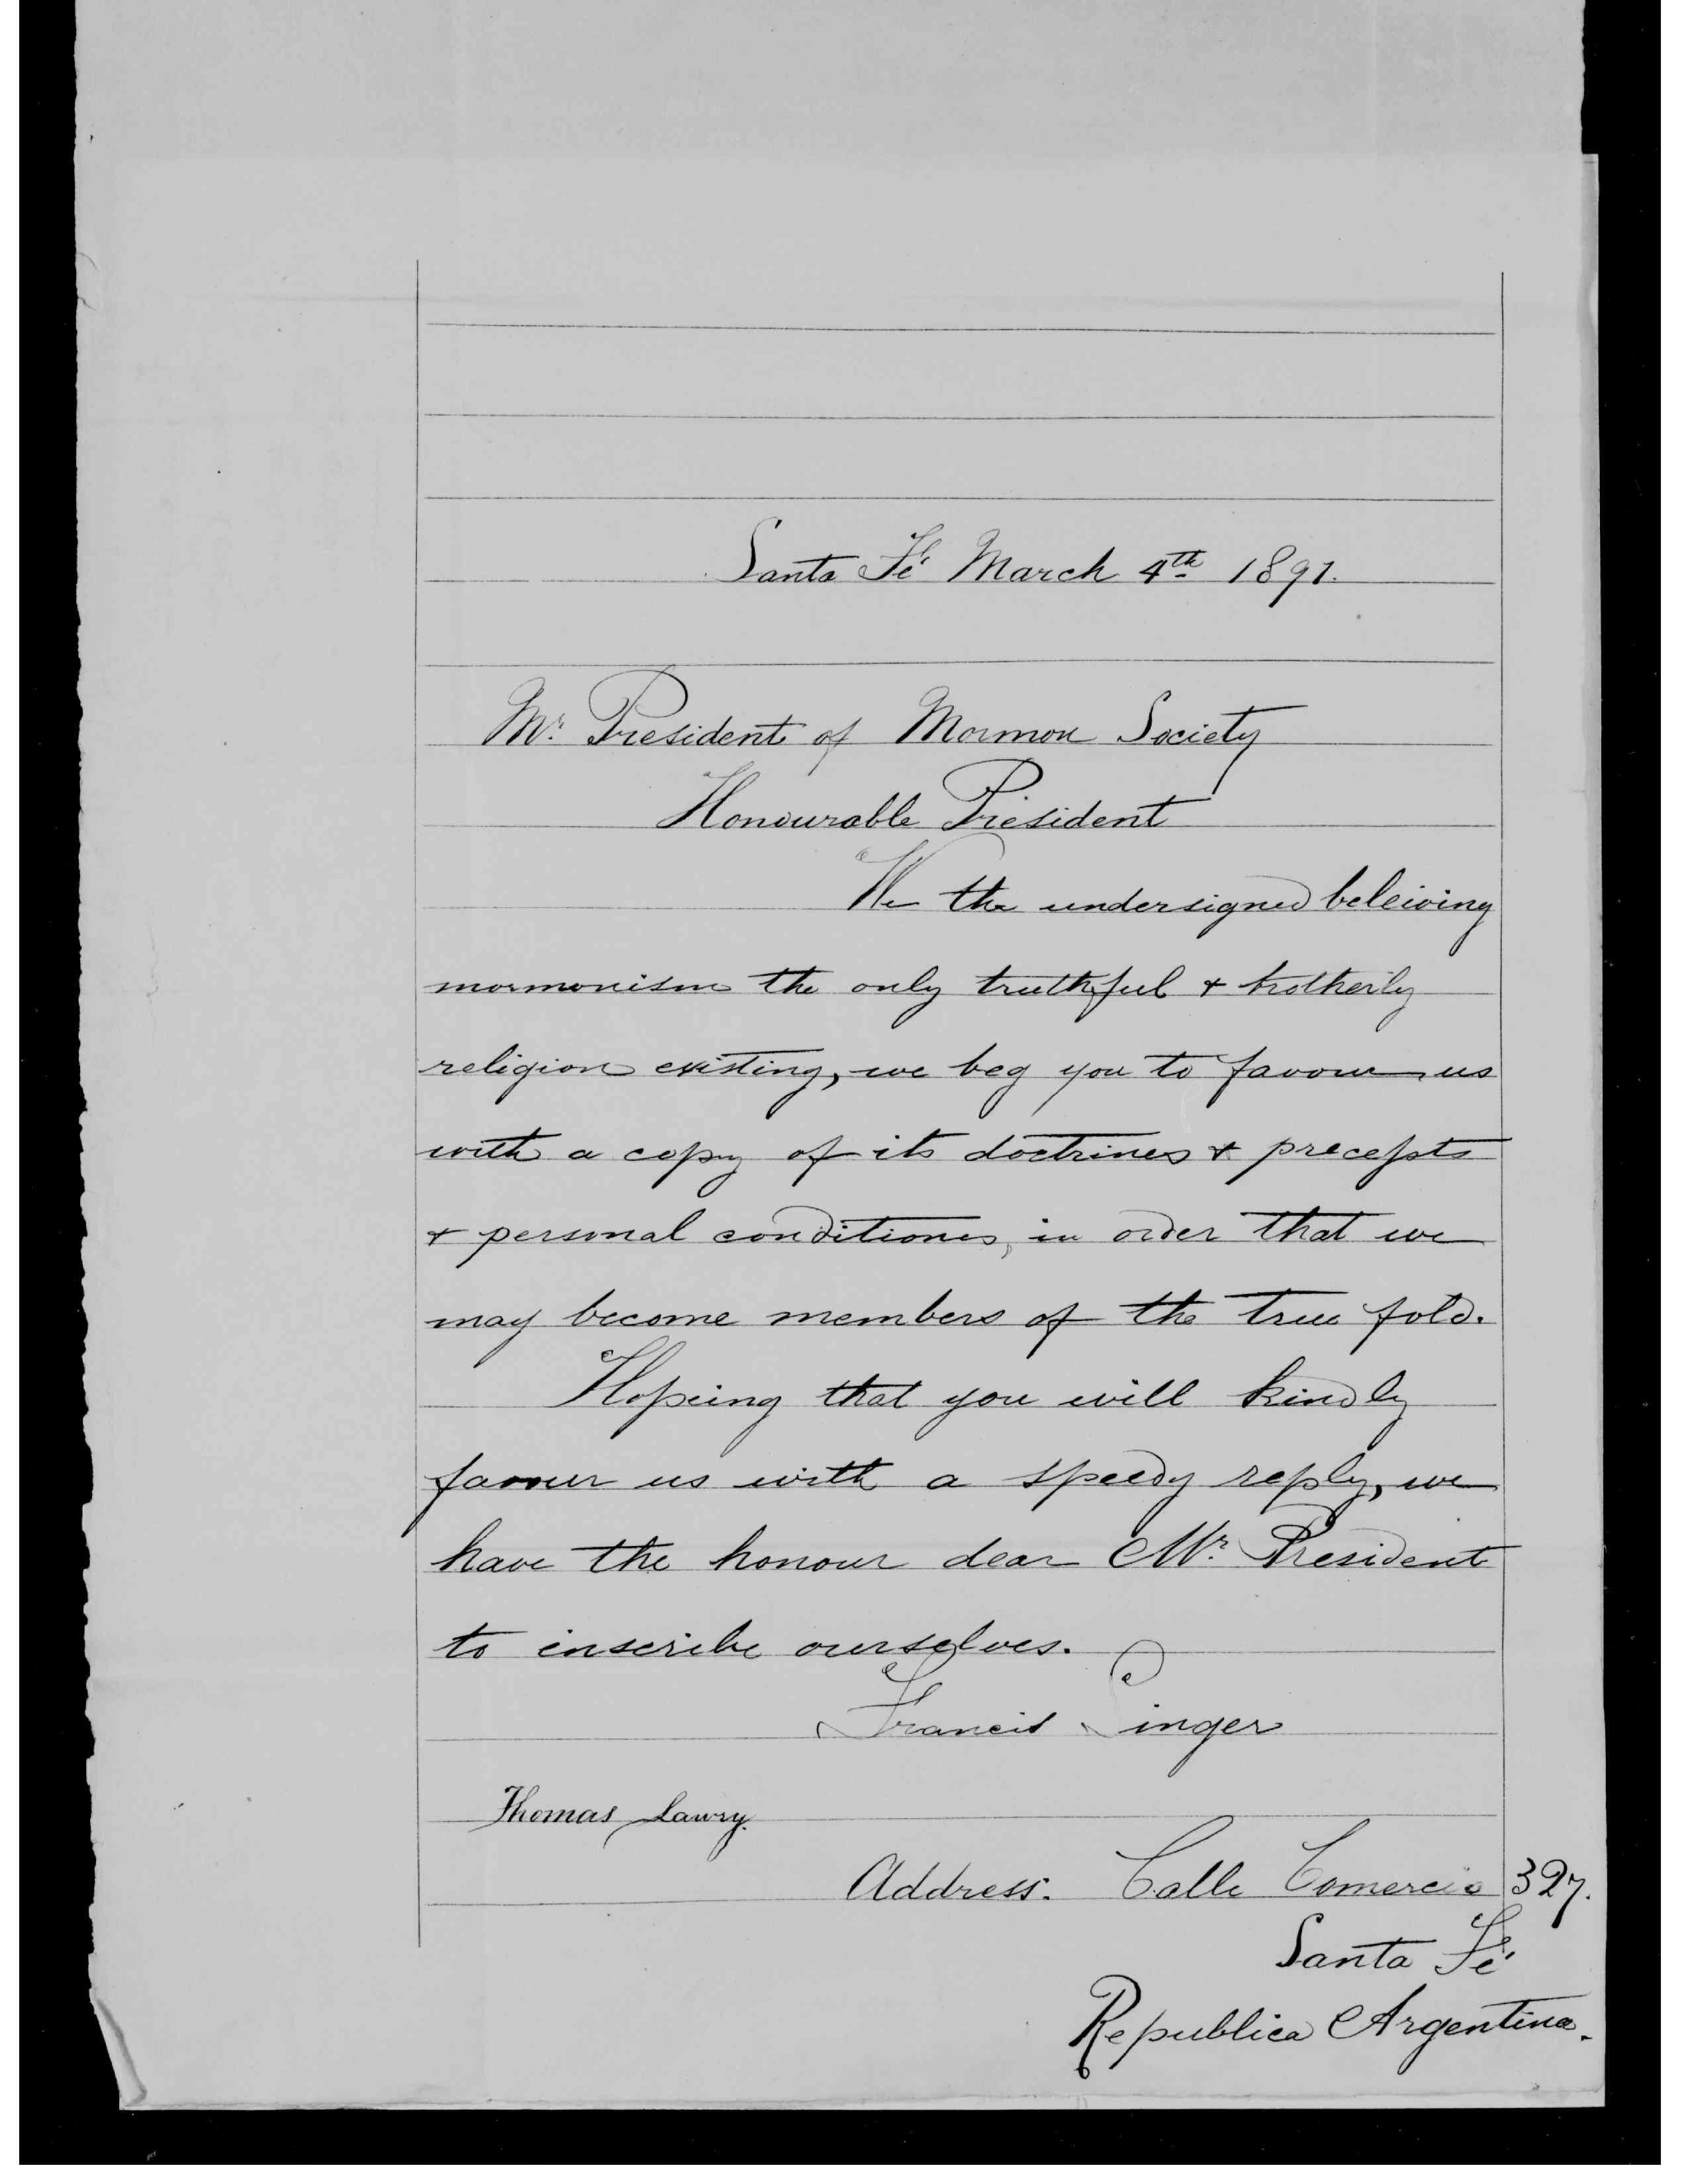 Santa Fé March 4th 1891.
Mr. President of Mormon Society
Honourable President
We the undersigned beleiving
mormonism the only truthful & brotherly
religion existing, we beg you to favour us
with a copy of its doctrines & precepts
& personal conditiones, in order that we
may become members of the true fold.
Hopeing that you will kindly
favour us with a speedy reply, we
have the honour dear Mr. President
to inscribe ourselves.
Francis Singer
Thomas Lawry.
Address. Calle Comercio 327.
Santa Fé
Republica Argentina.